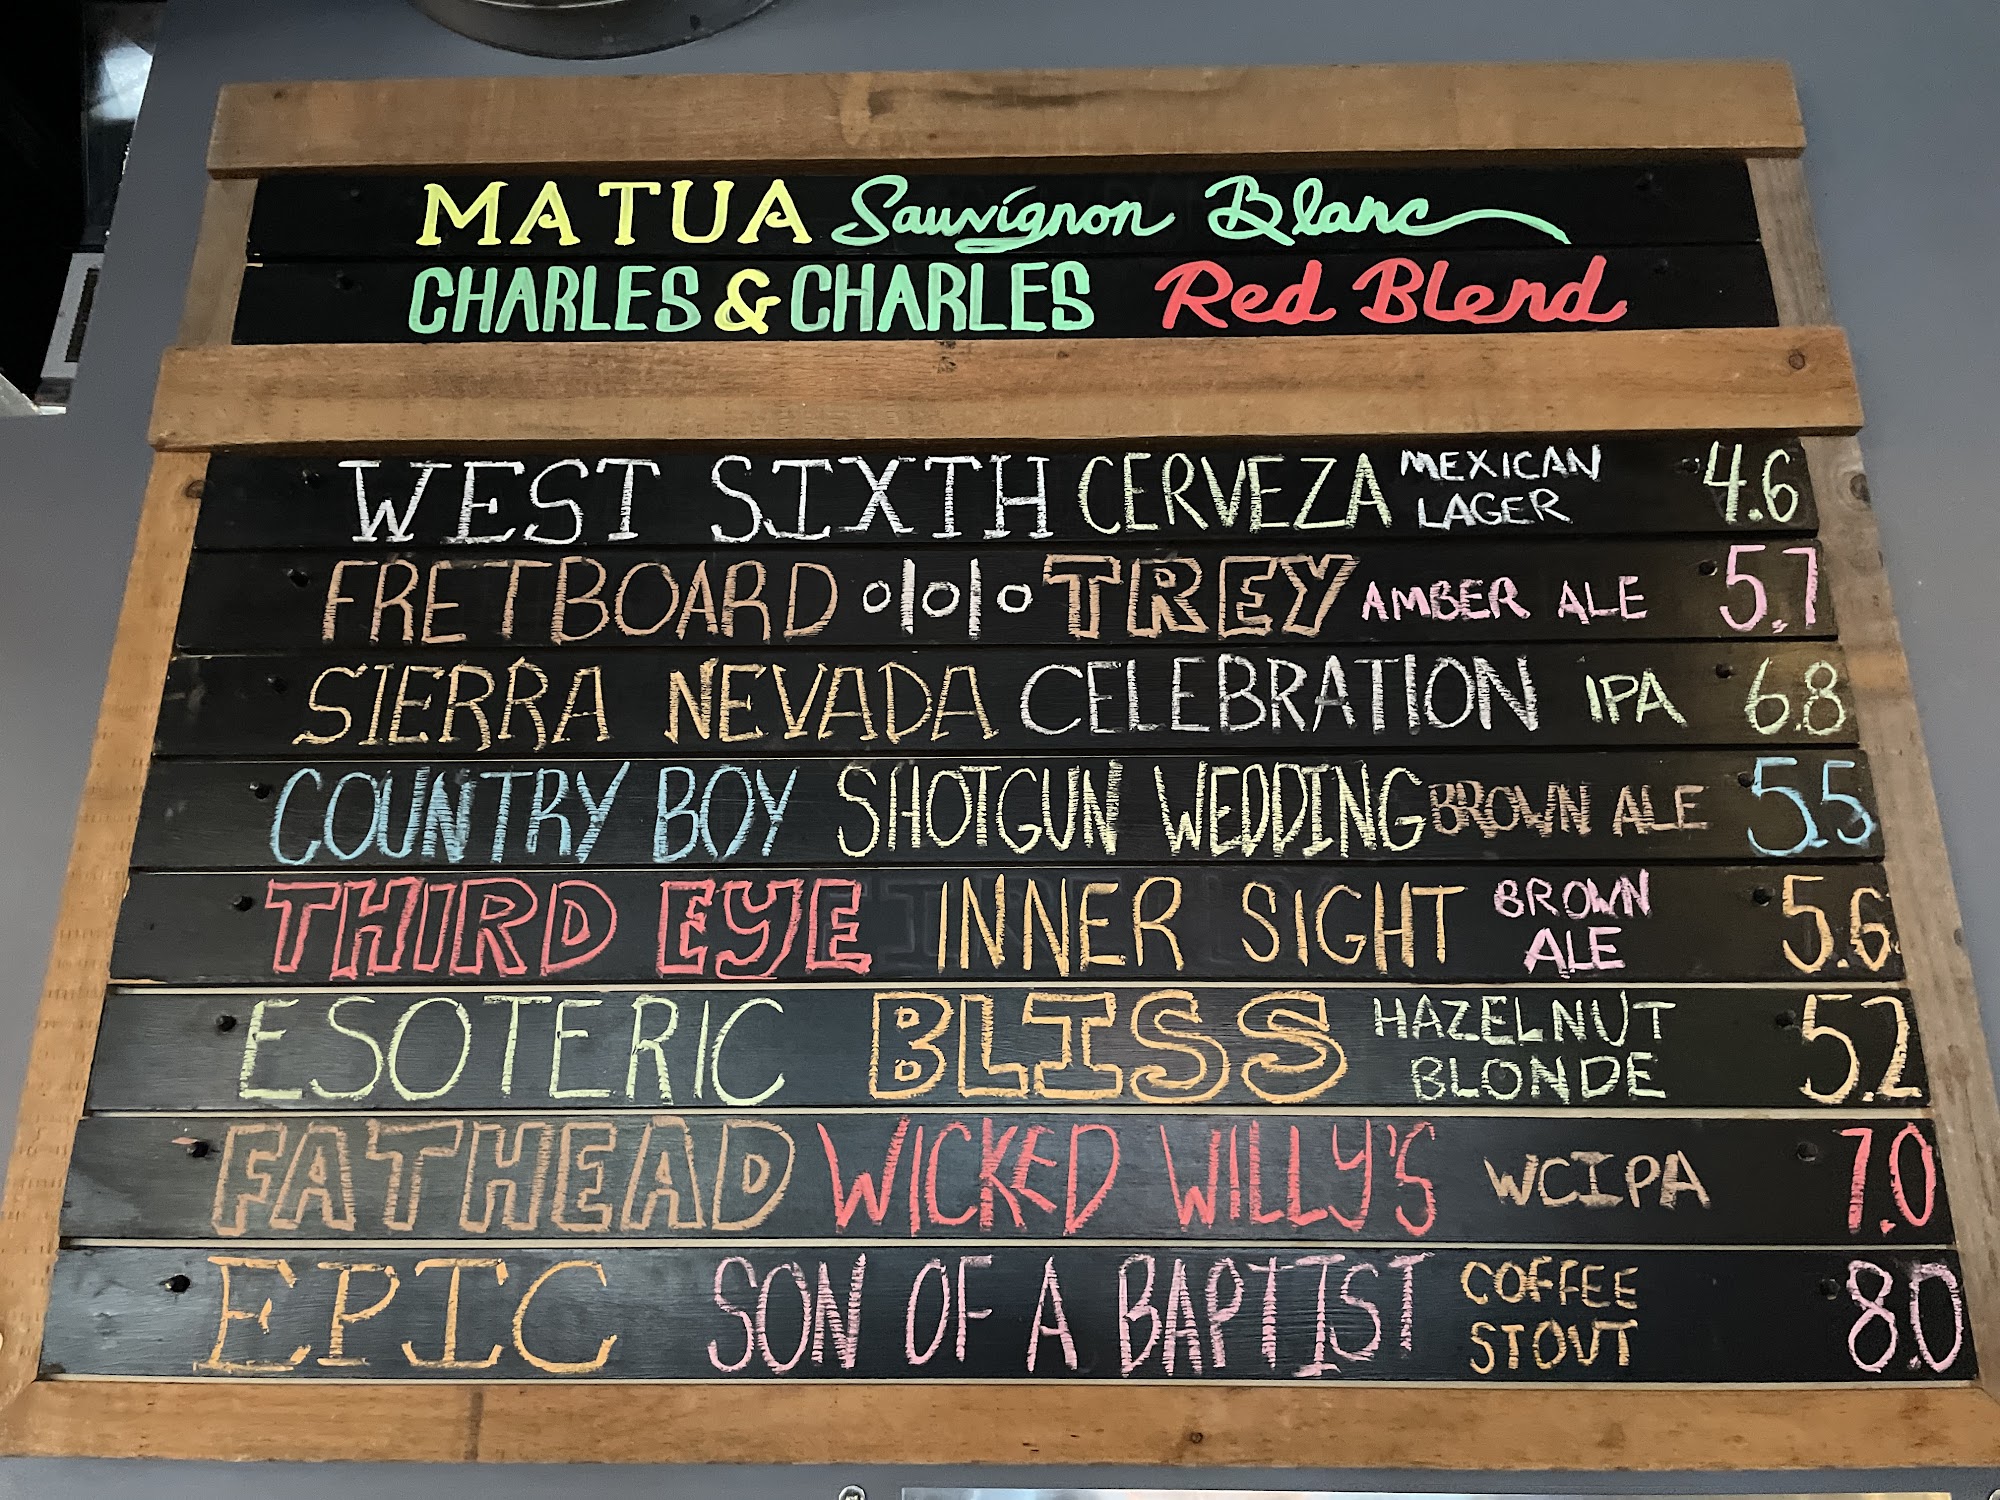 MATUA Sauvignon Blanc
CHARLES & CHARLES Red Blend
WEST SIXTH CERVEZA MEXICAN LAGER 4.6
FRETBOARD TREY AMBER ALE 5.7
SIERRA NEVADA CELEBRATION IPA 6.8
COUNTRY BOY SHOTGUN WEDDING BROWN ALE 5.5
THIRD EYE INNER SIGHT BROWN ALE 5.6
ESOTERIC BLISS HAZELNUT BLONDE 5.2
FATHEAD WICKED WILLY'S WCIPA 7.0
EPIC SON OF A BAPTIST COFFEE STOUT 8.0